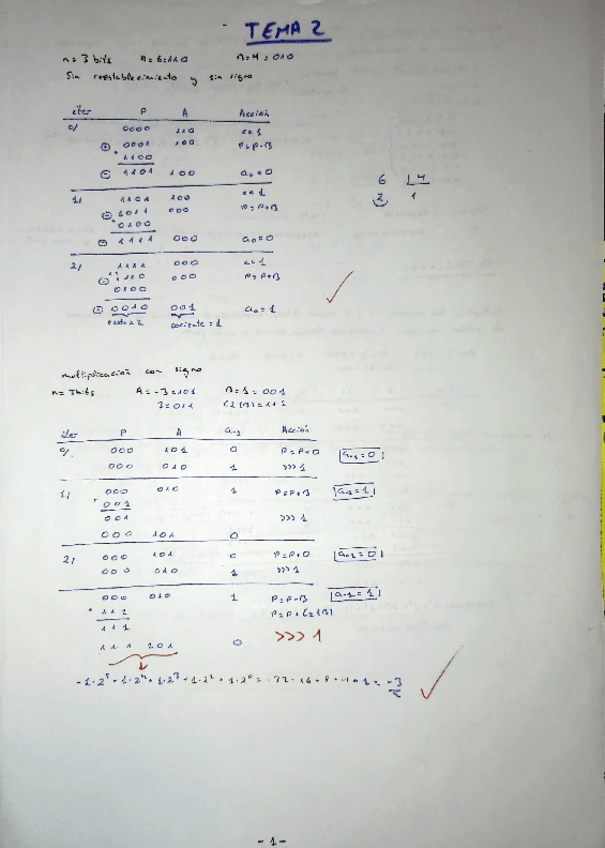 TEMA 2
n=3 bits A=6=110 B=4=010
Sin reestablecimiento y sin signo
iter P A Acción
0/ 0000 110 <<1
0001 100 P=P-B
+1100
1101 100 a₀=0
1/ 1101 100 <<1
1011 000 P=P+B
+0100
1111 000 a₀=0
2/ 1111 000 <<1
1110 000 P=P+B
0100
0010 001 a₀=1
resto=2 cociente=1
6 4
2 1
multiplicación con signo
n=3bits A=-3=101 B=1=001
3=011 C2(B)=111
iter P A a-1 Acción
0/ 000 101 0 P=P+0 a-1=0
000 010 1 >>>1
1/ 000 010 1 P=P+B a-1=1
+001
001 >>>1
000 101 0
2/ 000 101 0 P=P+0 a-1=0
000 010 1 >>>1
000 010 1 P=P-B a-1=1
+111 P=P+C2(B)
111
111 101 0 >>>1
-1·2⁵+1·2⁴+1·2³+1·2²+1·2⁰=-32+16+8+4+1=-3
-1-